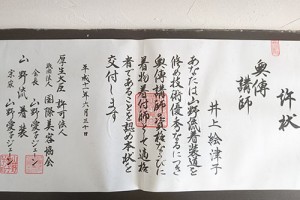 許状
奥傳
講師
井上絵津子
あなたは山野流着装道を
修め技術優秀なるにつき
奥傳講師の資格ならびに
着物着付師として適格
者であることを認め本状を
交付します
平成十一年六月三十日
厚生大臣許可法人
社団法人 国際美容協会
会長 山野愛子ジェーン
山野流着装
宗家 山野愛子ジェーン